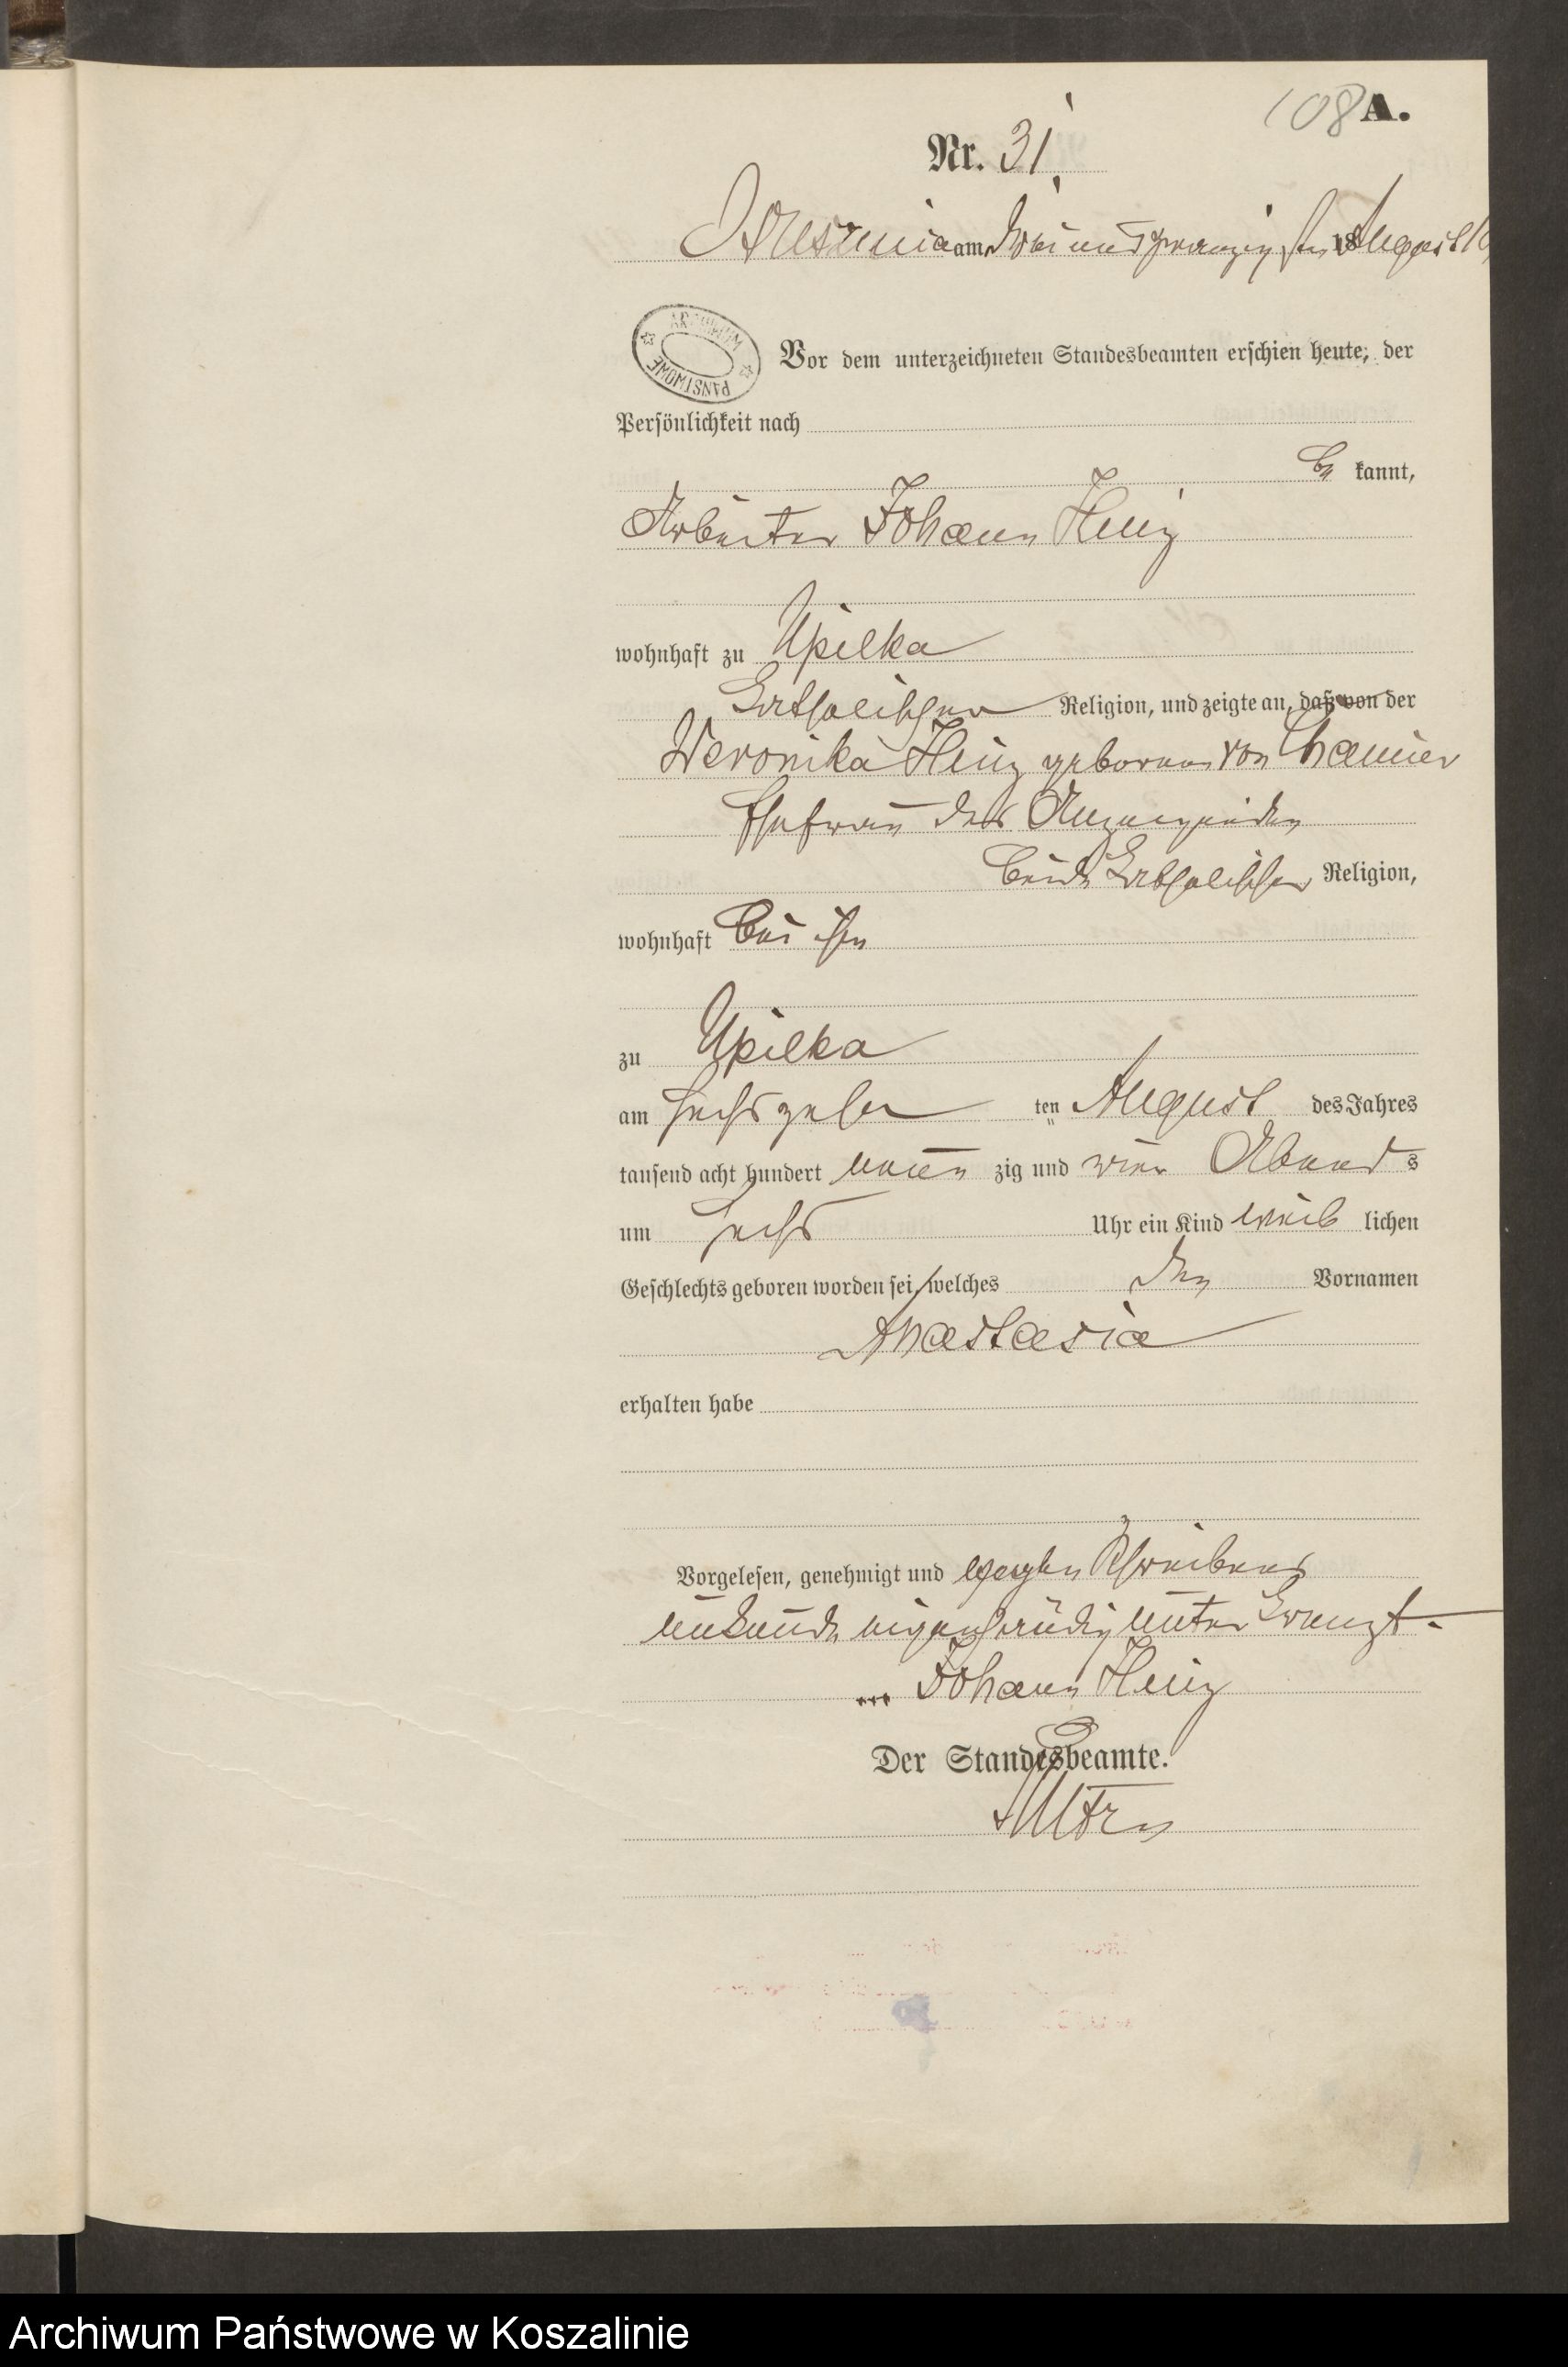 108 A.
Nr. 31
am drei und zwanzigsten August 18
ARCHIWUM PAŃSTWOWE
Vor dem unterzeichneten Standesbeamten erschien heute, der
Persönlichkeit nach
be kannt,
Arbeiter Johann Heinz
wohnhaft zu Upilka
katholischer Religion, und zeigte an, daß von der
Weronika Heinz geborene von Chamier
Ehefrau des Anzeigenden
beide katholischer Religion,
wohnhaft bei ihm
zu Upilka
am sechszehn ten August des Jahres
tausend acht hundert neun zig und vier Abends
um sechs Uhr ein Kind weib lichen
Geschlechts geboren worden sei, welches den Vornamen
Anastasia
erhalten habe
Vorgelesen, genehmigt und wegen Schreibens
unkunde eigenhändig unterkreuzt.
+++ Johann Heinz
Der Standesbeamte.
Archiwum Państwowe w Koszalinie